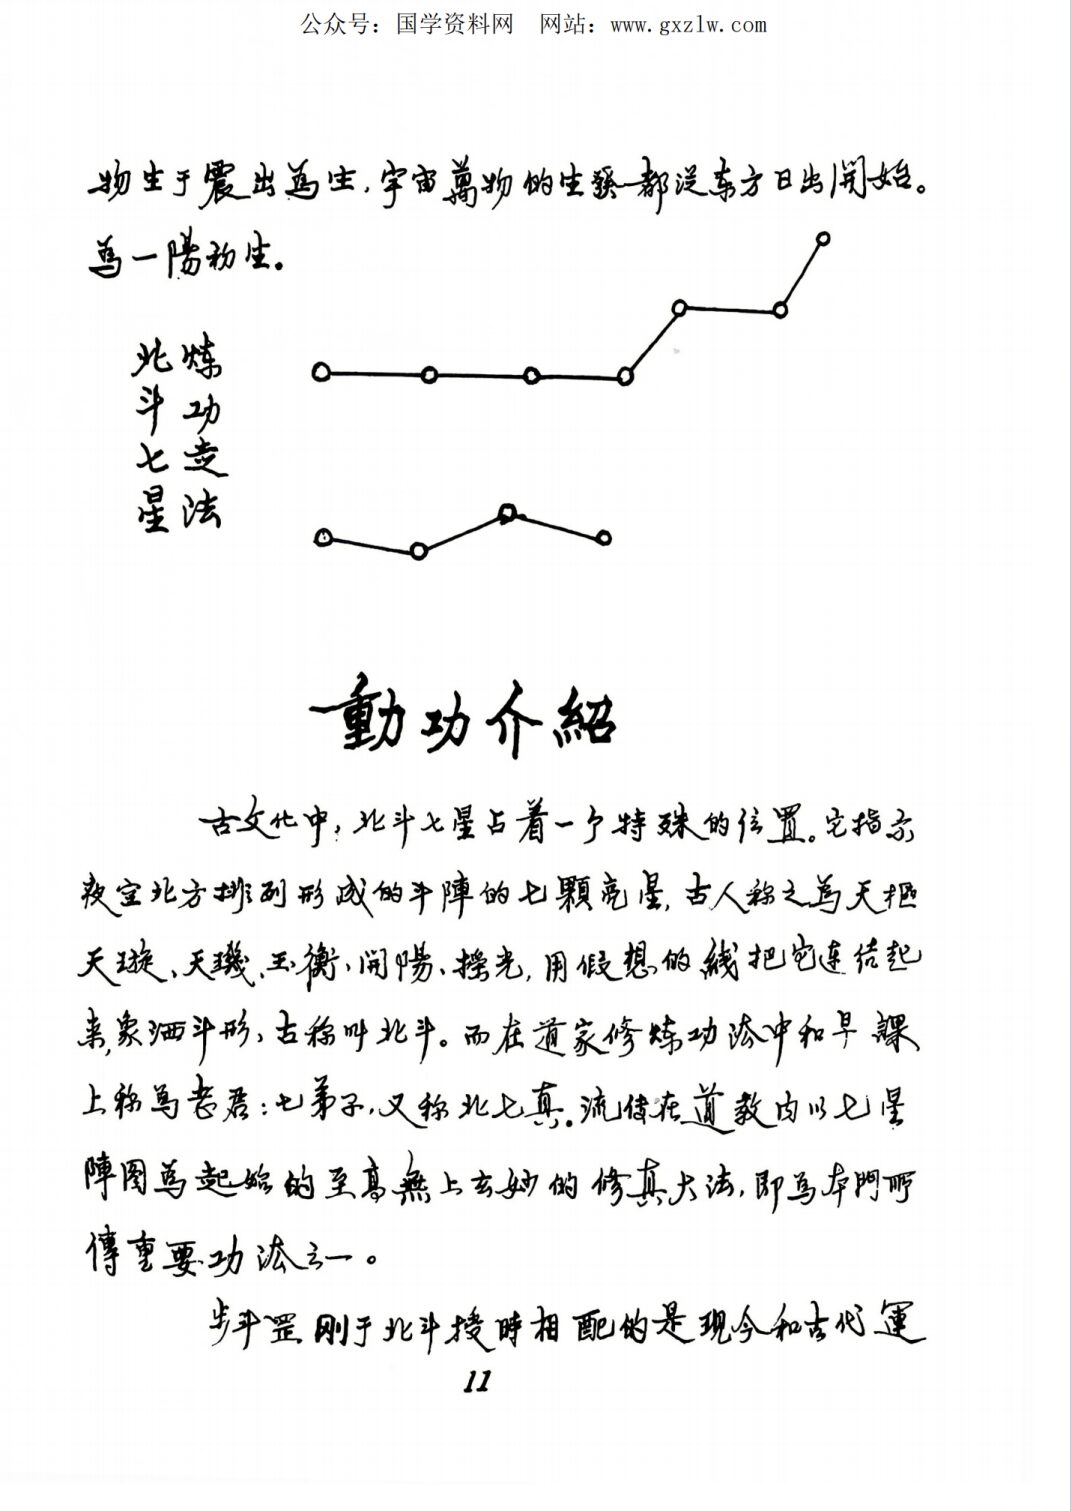 公众号：国学资料网　网站：www.gxzlw.com
物生于震出為生，宇宙萬物的生發都從东方日出開始。
為一陽初生。
北斗七星
炼功走法
動功介紹
古文化中，北斗七星占着一个特殊的位置。它指示
夜空北方排列形成的斗陣的七顆亮星，古人称之為天枢
天璇、天璣、玉衡、開陽、摇光，用假想的綫把它连结起
来，象酒斗形，古称叫北斗。而在道家修炼功法中和早課
上称為老君：七弟子，又称北七真。流传在道教内以七星
陣图為起始的至高無上玄妙的修真大法，即為本門所
傳重要功法之一。
步斗罡刚于北斗授時相配的是現今和古代運
11